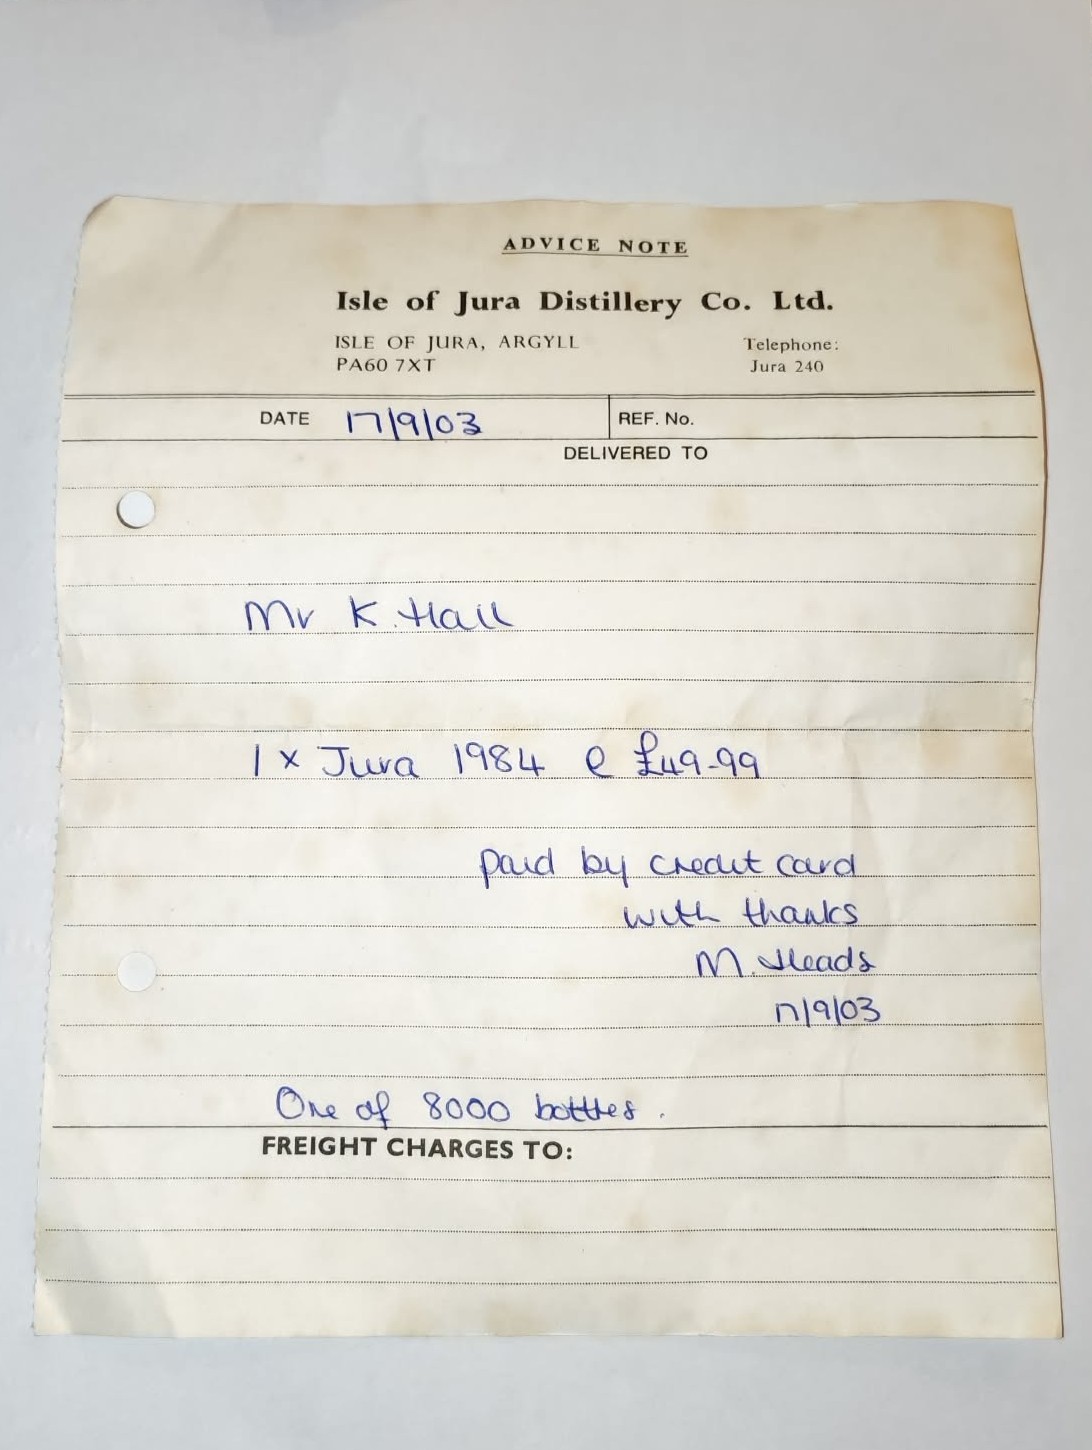 ADVICE NOTE
Isle of Jura Distillery Co. Ltd.
ISLE OF JURA, ARGYLL
PA60 7XT
Telephone:
Jura 240
DATE 17/9/03 REF. No.
DELIVERED TO
Mr K. Hall
1 x Jura 1984 @ £49-99
paid by credit card
with thanks
M. Heads
17/9/03
One of 8000 bottles.
FREIGHT CHARGES TO: